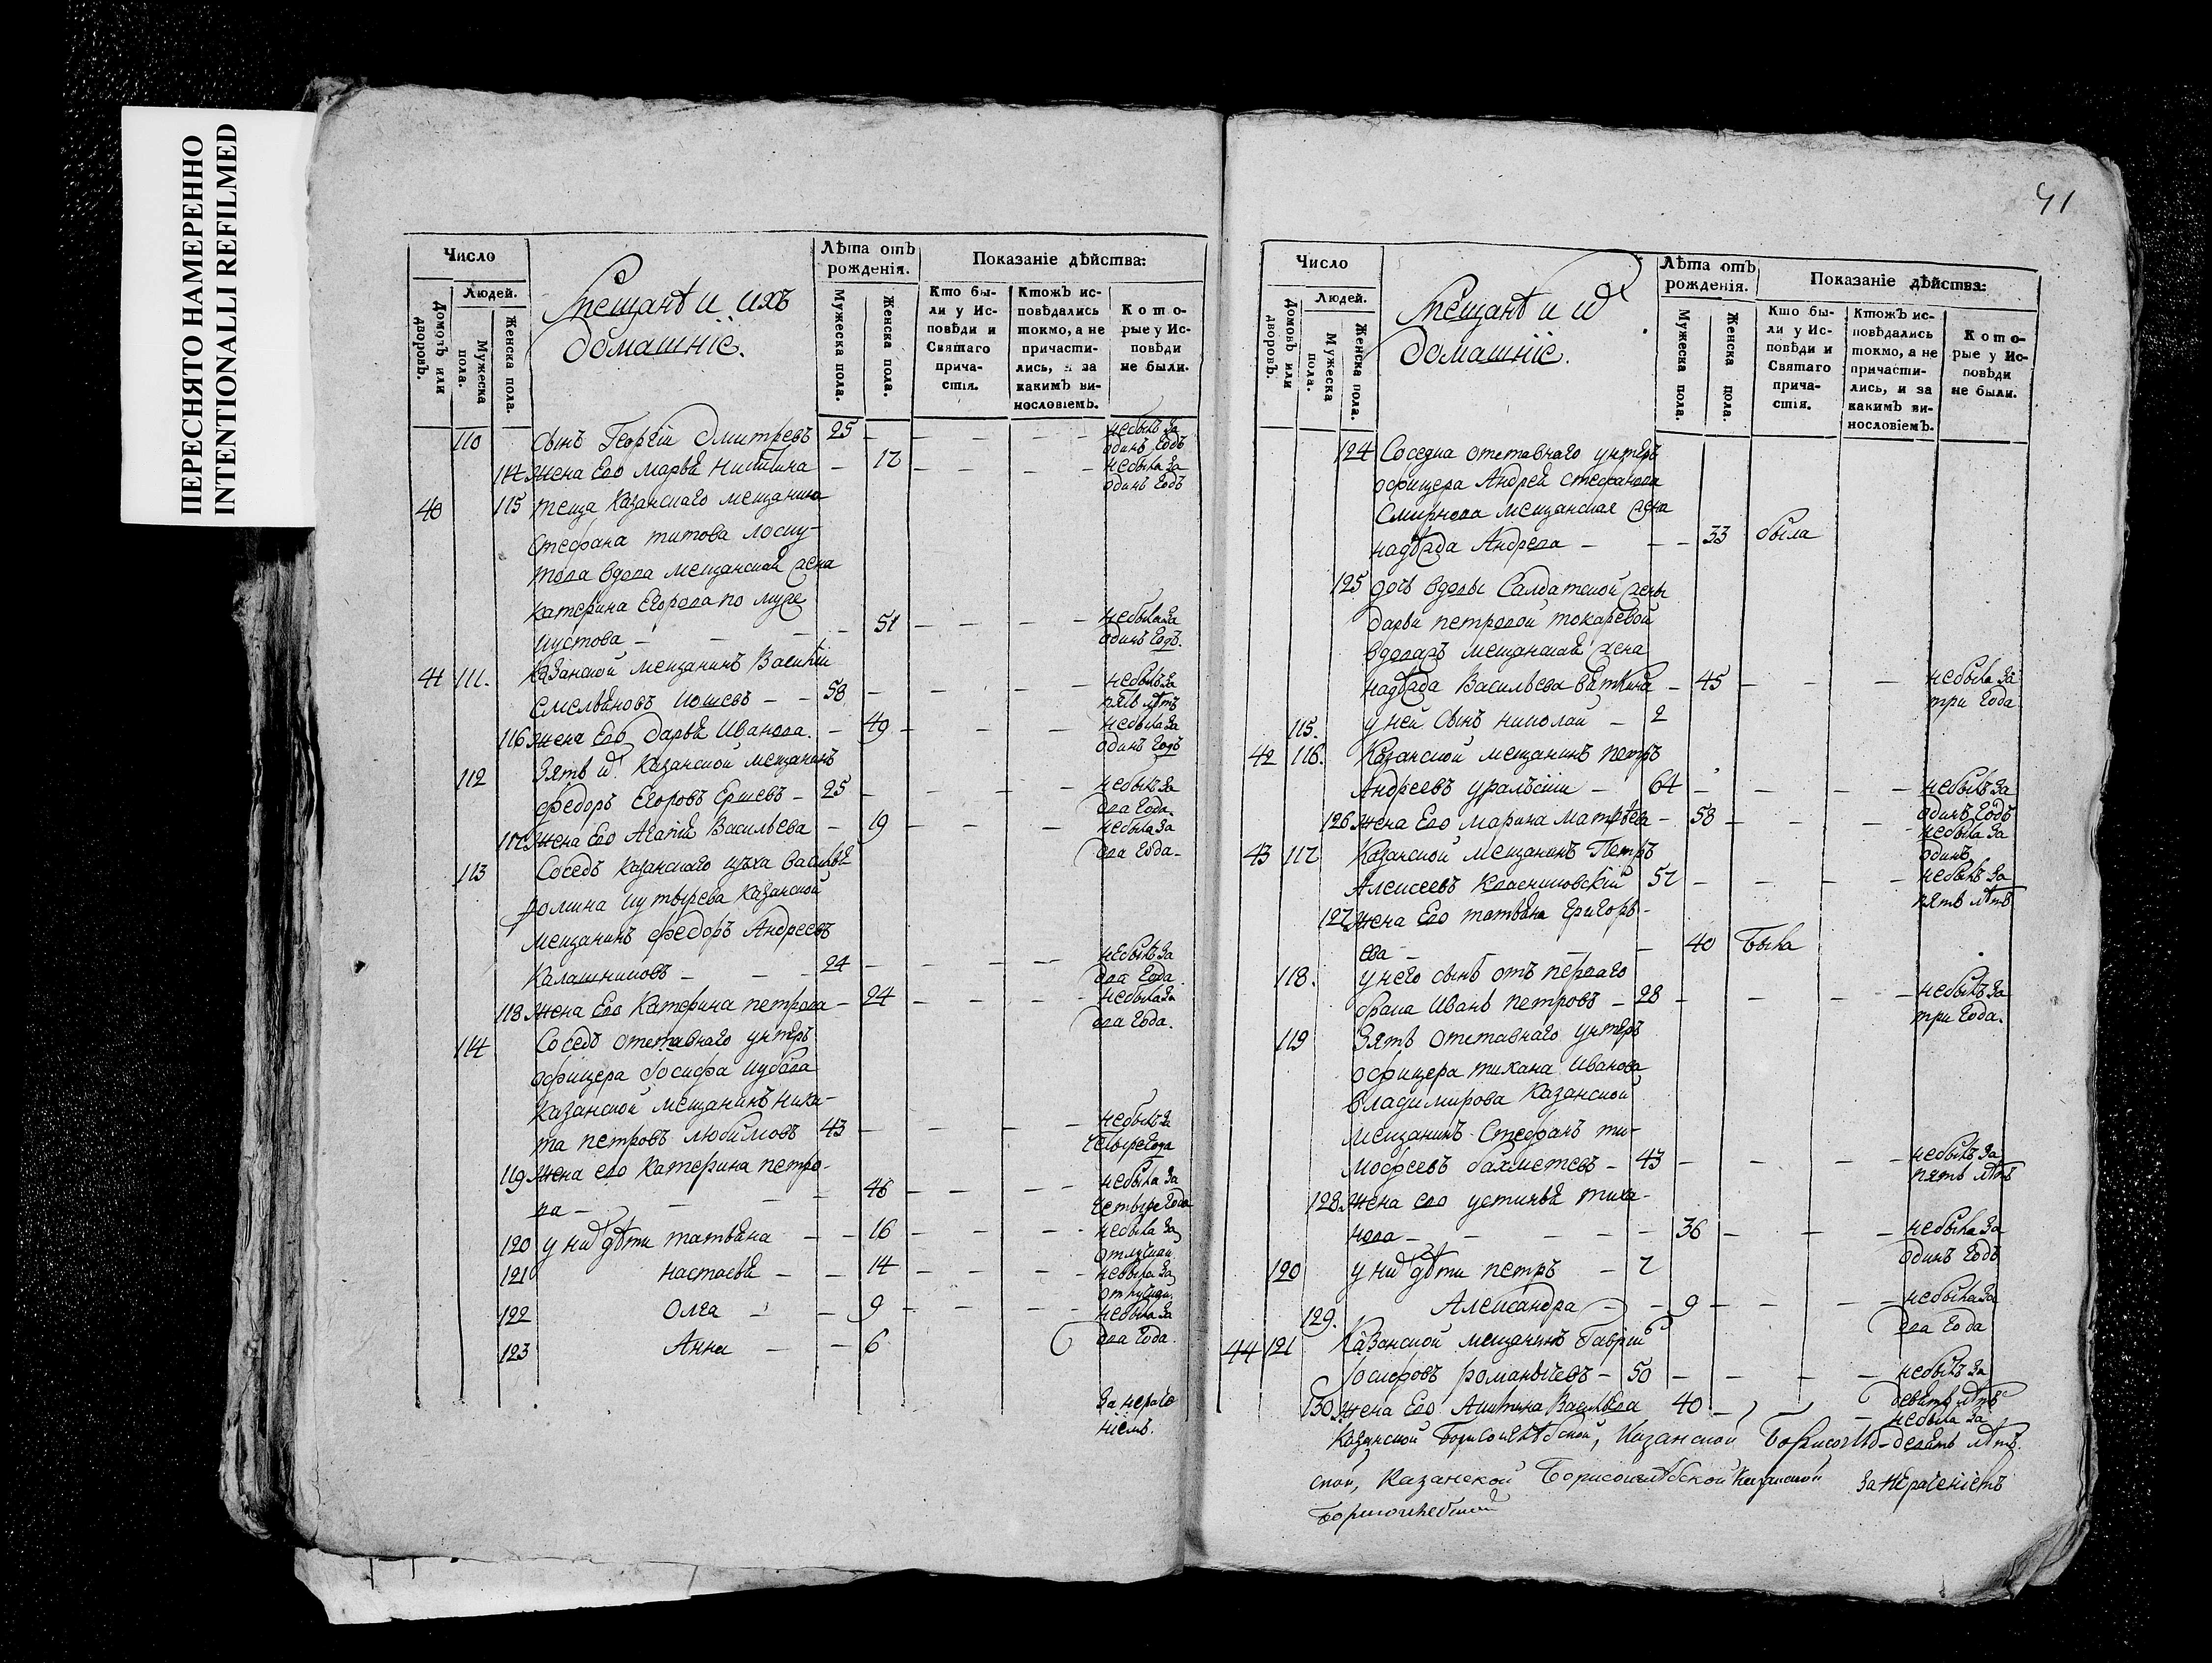 ПЕРЕСНЯТО НАМЕРЕННО
INTENTIONALLI REFILMED
Число
Людей.
Домовъ или дворовъ.
Мужеска пола.
Женска пола.
Мещанѣ и ихъ
домашніе.
Лѣта отъ рожденія.
Мужеска пола.
Женска пола.
Показаніе дѣйства:
Кто бы-
ли у Ис-
повѣди и
Святаго
прича-
стія.
Ктожъ ис-
повѣдались
токмо, а не
причасти-
лись, и за
какимъ ви-
нословіемъ.
Кото-
рые у Ис-
повѣди
не были.
110 сынъ Георгій Дмитревъ 25 - - - - небылъ за
одинъ годъ
114 жена его Марья Никитина - 17 - - - небыла за
одинъ годъ
40 115 теща казанскаго мещанина
Стефана Титова
вдова мещанская жена
Катерина Егорова по муже
Шустова - - - 51 - - - - небыла за
одинъ годъ.
41 111. Казанской мещанинъ Василий
Емельяновъ - - 58 - - - - небылъ за
пять лѣтъ
116 жена его Дарья Иванова. - 49 - - - небыла за
одинъ годъ
112 Зять их Казанской мещанинъ
Федоръ Егоровъ Ершевъ - 25 - - - - небылъ за
два года.
117 жена его Агафия Васильева - 19 - - - небыла за
два года.
113 Соседъ казанскаго цеха Василья
Фомина Казанской
мещанинъ Федоръ Андреевъ
Калашниковъ - - - 24 - - - - небылъ за
два года.
118 жена его Катерина Петрова - 24 - - - небыла за
два года.
114 Соседъ отставнаго унтеръ
офицера Иосифа
Казанской мещанинъ Ники-
та Петровъ Любимовъ 43 - - - - небылъ за
четыре года
119 жена его Катерина Петро-
ва - - - 46 - - - - небыла за
четыре года
120 у них дѣти Татьяна - - 16 - - - - небыла за
121 Настасья - - 14 - - - - небыла за
122 Олга - - 9 - - - - небыла за
123 Анна - - 6 два года.
За нераче
ніемъ.
41
Число
Людей.
Домовъ или дворовъ.
Мужеска пола.
Женска пола.
Мещанѣ и их
домашніе.
Лѣта отъ рожденія.
Мужеска пола.
Женска пола.
Показаніе дѣйства:
Кто бы-
ли у Ис-
повѣди и
Святаго
прича-
стія.
Ктожъ ис-
повѣдались
токмо, а не
причасти-
лись, и за
какимъ ви-
нословіемъ.
Кото-
рые у Ис-
повѣди
не были.
124 Соседка отставнаго унтеръ
офицера Андрея Стефанова
Смирнова мещанская жена
Надежда Андреева - - - 33 была
125 дочь вдовы салдатской жены
Дарьи Петровой Токаревой
вдовая мещанская жена
Надежда Васильева Вяткина - 45 - - - небыла за
три года
115. у ней сынъ Николай - 2
42 116. Казанской мещанинъ Петръ
Андреевъ Уральскій - 64 - - - - небылъ за
одинъ годъ
126 жена его Марина Матвѣева - 58 - - - небыла за
одинъ
43 117 Казанской мещанинъ Петръ
Алексеевъ 57 - - - - небылъ за
пять лѣтъ
127 жена его Татьяна Григорь-
ева - - - 40 была
118. у него сынъ отъ перваго
брака Иванъ Петровъ - 28 - - - - небылъ за
три года.
119 Зять отставнаго унтеръ
офицера Тихана Иванова
Владимирова Казанской
мещанинъ Стефанъ Ти-
мофеевъ Бахметевъ - 43 - - - - небылъ за
пять лѣтъ
128. жена его Устинья Тиха-
нова - - - - 36 - - - небыла за
одинъ годъ
120 у них дѣти Петръ - 7
129. Александра - - 9 - - - небыла за
два года
44 121 Казанской мещанинъ Гаврiи
Иосифовъ Романычевъ - 50 - - - - небылъ за
девять лѣтъ
130 жена его Акилина Васильева 40 - - - небыла за
девять лѣтъ.
Казанской Борисоглѣбской, Казанской Борисоглѣб-
ской, Казанской Борисоглѣбской Казанской За нераченіемъ
Борисоглебской